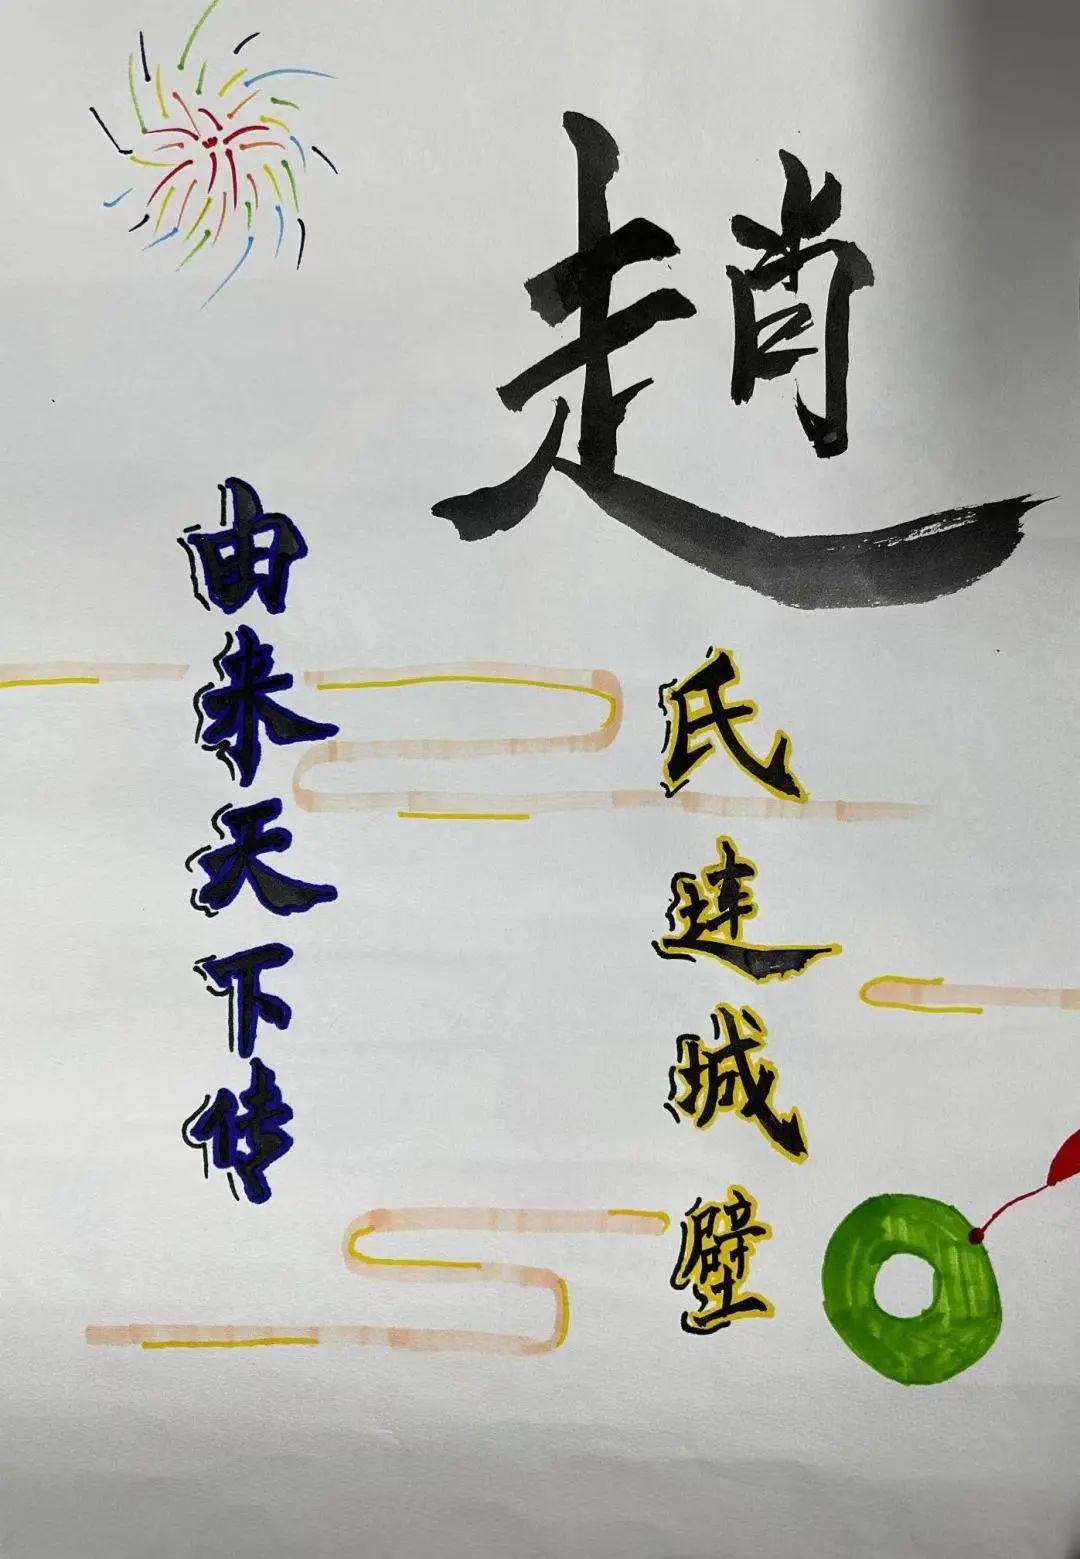 趙
氏连城壁
由来天下传